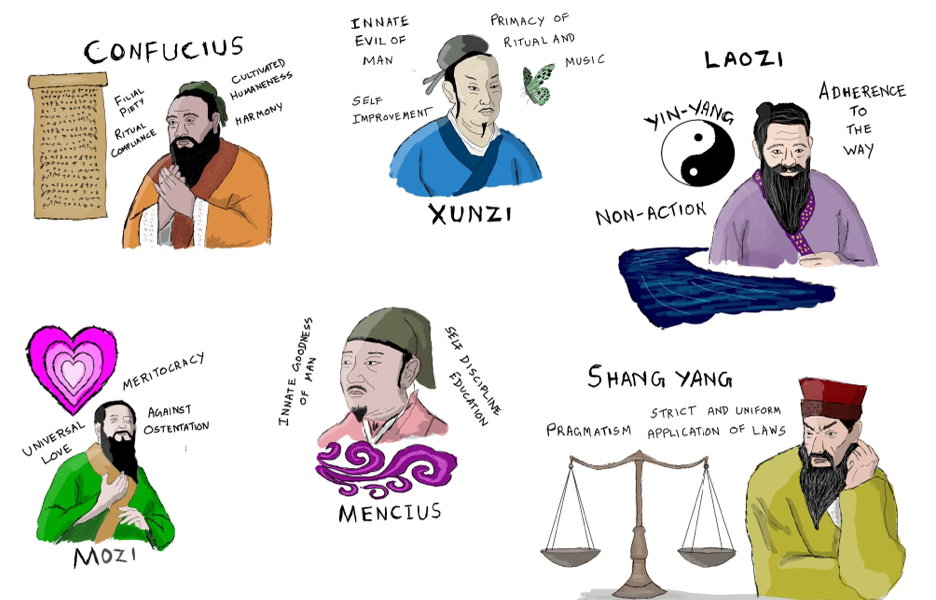 CONFUCIUS
FILIAL
PIETY
RITUAL
COMPLIANCE
CULTIVATED
HUMANENESS
HARMONY
INNATE
EVIL OF
MAN
PRIMACY OF
RITUAL AND
MUSIC
SELF
IMPROVEMENT
XUNZI
LAOZI
YIN-YANG
ADHERENCE
TO
THE
WAY
NON-ACTION
MERITOCRACY
UNIVERSAL
LOVE
AGAINST
OSTENTATION
MOZI
INNATE GOODNESS
OF MAN
SELF DISCIPLINE
EDUCATION
MENCIUS
SHANG YANG
PRAGMATISM
STRICT AND UNIFORM
APPLICATION OF LAWS